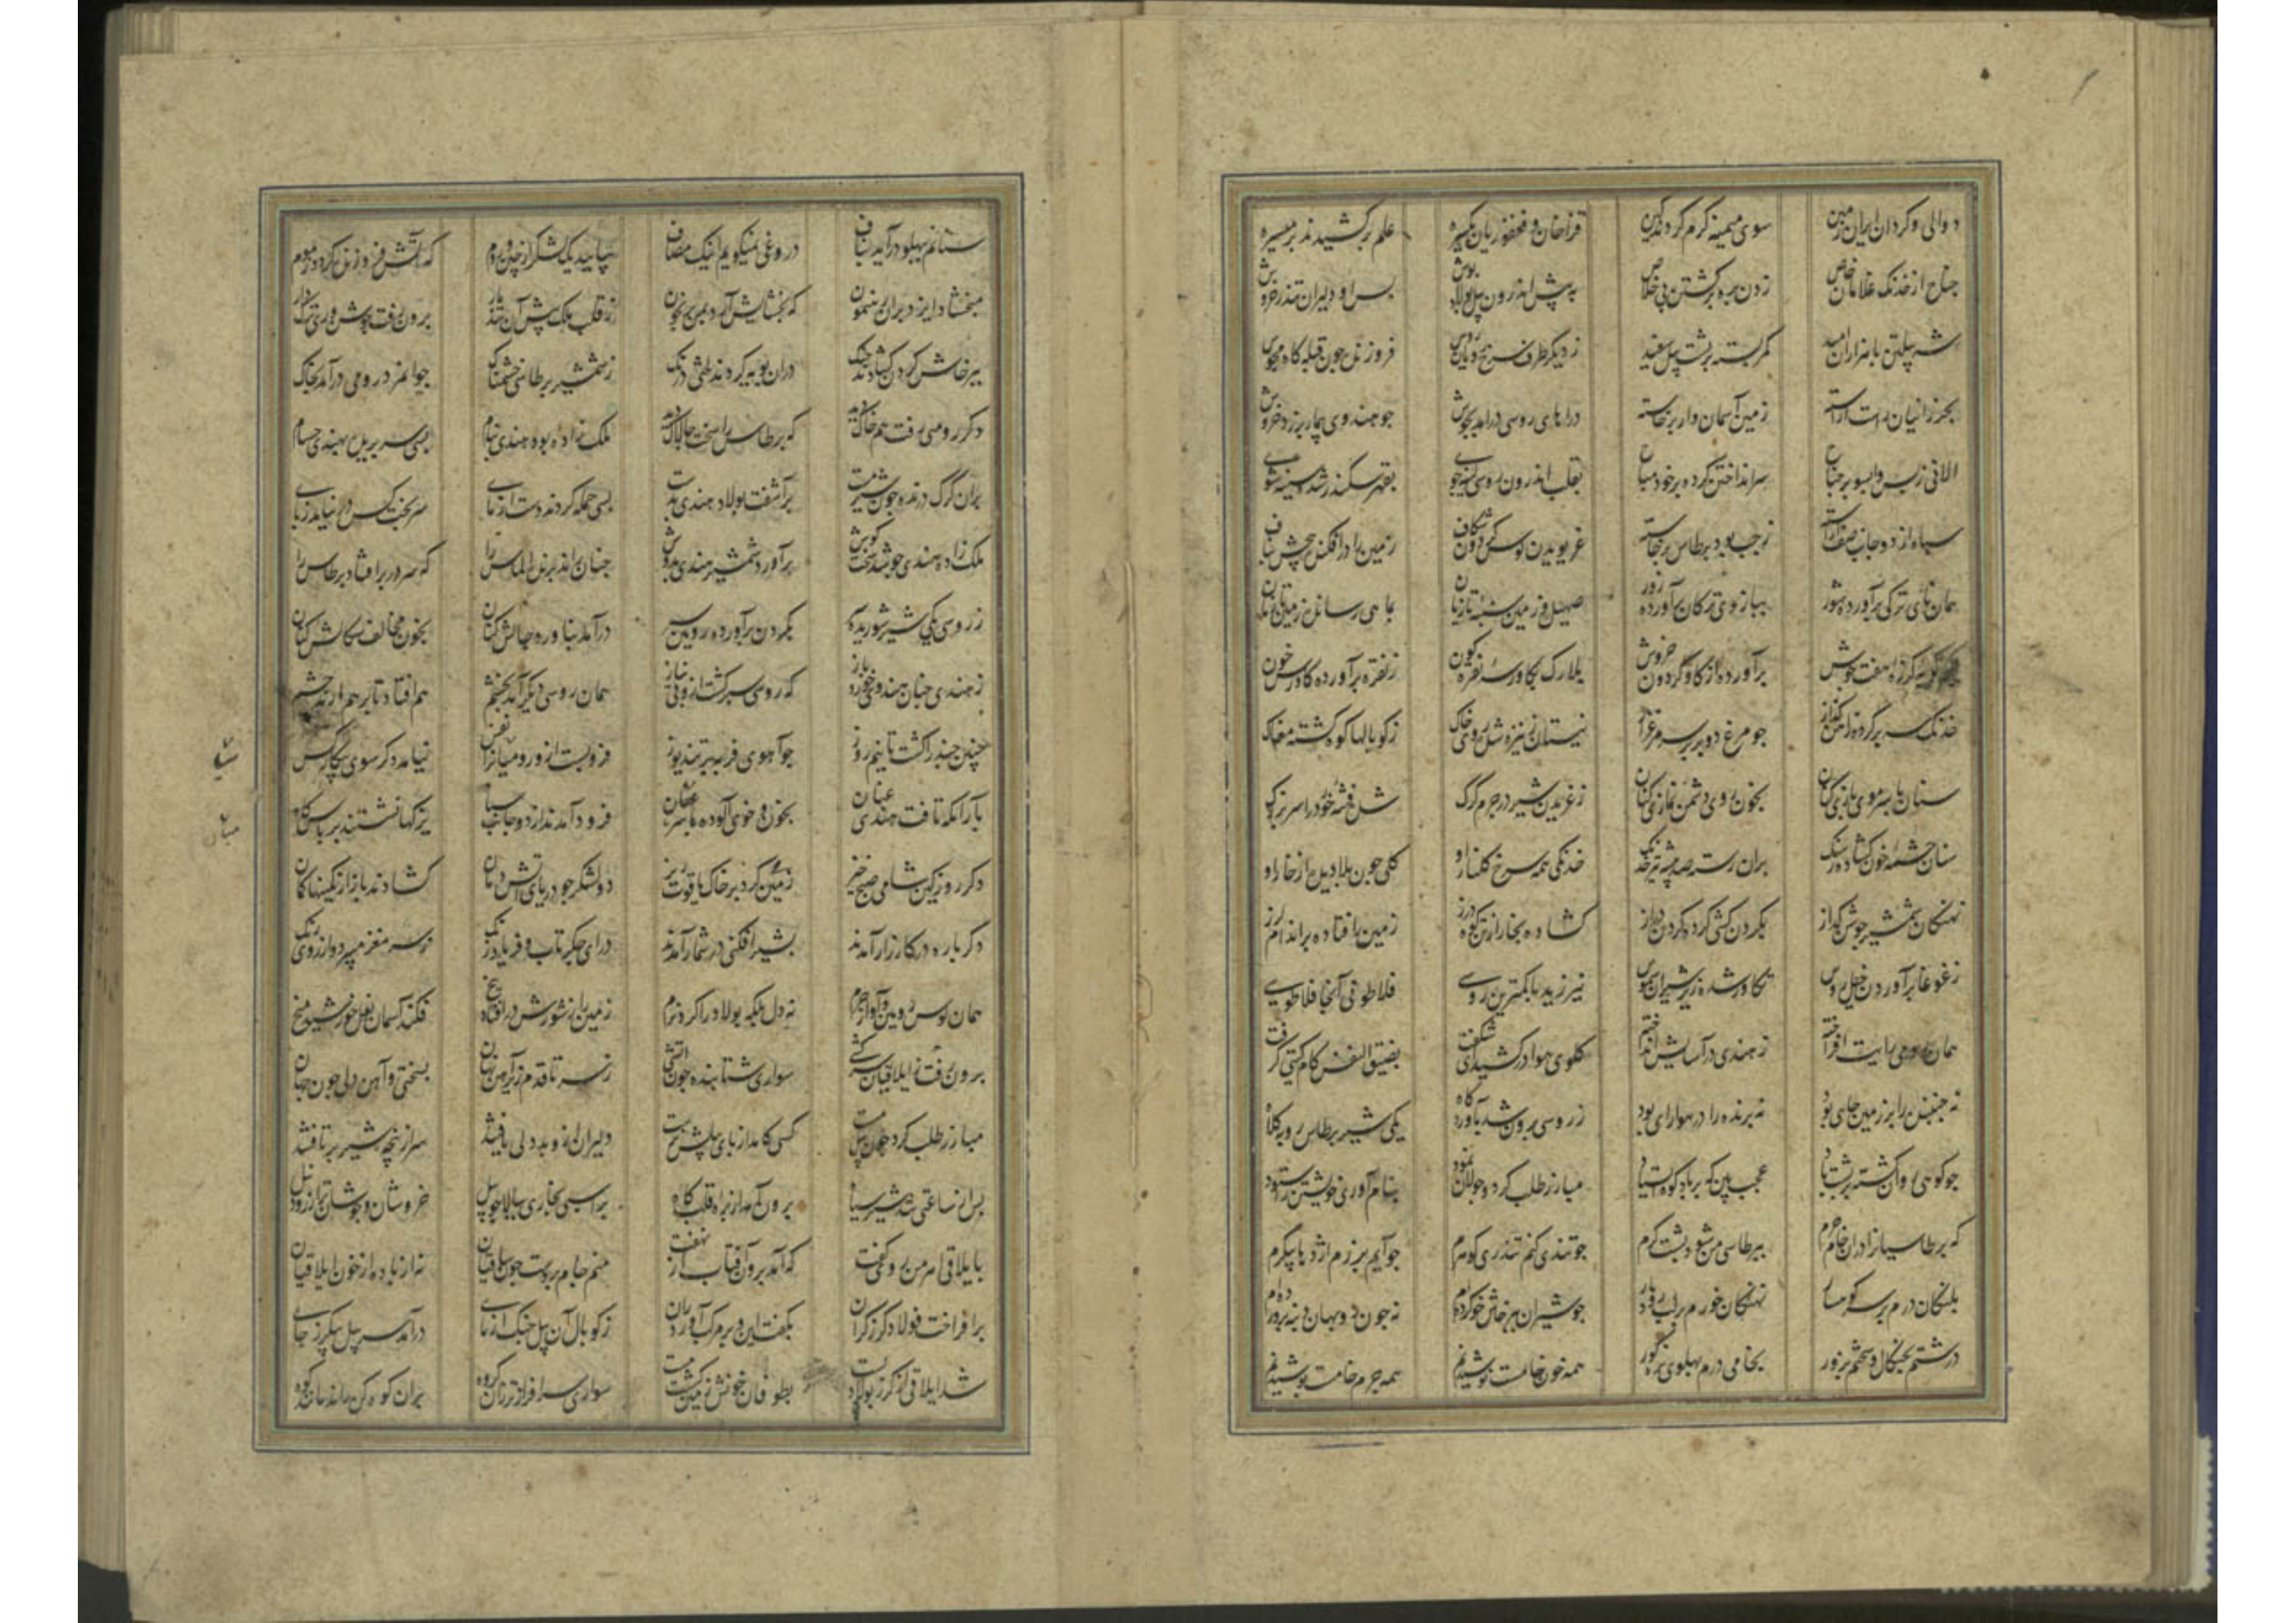 دوالی و کردان ایران زمین سوی میمنه کرم کردند کین قراخان و فغفوریان یکسره علم برکشیدند بر میسره
جناح از خدنک غلامان خاص زدن بره برکشتن بی خلاص به پیش اندرون پیل پولاد پوش پس او دلیران تندر خروش
شه پیلتن با هزاران امید کمر بسته بر پشت پیل سفید ز دیکر طرف سرخ رویان روس فروزنده چون قبله کاه مجوس
بخرزانیان راست آراسته زمین آسمان وار برخاسته دراهای روسی درامد بجوش جو هندوی بیمار بر زد خروش
الانی ز پس وایسو بر جناح سر انداختن کرده بر خود مباح بقلب اندرون روسی کینه جوی بقهر سکندر شده سینه شوی
سپاه از دو جانب صف آراسته ز جب بود برطاس برخاسته غریویدن کوس کردون شکاف زمین را درافکند پیچش بناف
همان نای ترکی برآورده شور ببازوی ترکان آورده زور صهیل زمین سنبه تازیان بماهی رسانده زمین را زیان
کرزه هفت جوش برآورده از کاو کردون خروش بلارک بکاورسه نقره کون ز نقره برآورده کاورس خون
خدنک سه پر کرده زاهن کذار جو مرغ دو پر بر سر مرغزار نیستانی از نیزه شد روی خاک ز کوپالها کوه کشته مغاک
سنان با سر موی بازی کنان بخون روی دشمن نمازی کنان ز غریدن شیر در جرم کرک شده فتنه خرد را سر بزرک
سنان چشمه خون کشاده ز سنک بران رسته صد بیشه تیر خدنک خدنکی همه سرخ کل بار او کلی چون بلا دیده از خار او
نهنکان شمشیر جوشن کداز بکردن کشی کرده کردن دراز کشاده بخار از تن کوه درز زمین را فتاده بر اندام لرز
ز غوغا برآوردن خیل روس تکاور شده زیر شیران شموس نیرزید با کمترین روسیی فلاطونی آنجا فلاطوسیی
همان رومی رایت افراخته ز هندی در آسایش انداخته کلوی هوا درکشیدی شکفت بضیق النفس کام کیتی کرفت
نه جنبنده را بر زمین جای بود نه پرنده را در هوا رای بود ز روسی برون شد بآوردکاه یکی شیر برطاس روبه کلاه
جو کوهی روان کشته بر پشت باد عجب بین که بر باد کوه ایستاد مبارز طلب کرد و جولان نمود بنام آوری خویشتن را ستود
که برطاسیانرا دران خام چرم ببرطاسی من شود پشت کرم جو تندی کنم تندری کوهرم جو آیم برزم اژدها پیکرم
پلنکان درم بر سر کوهسار نهنکان خورم بر لب رودبار جو شیران بپرخاش خو کرده ام نه چون دوبهان دنبه پرورده ام
درشتم بچنکال و سختم بزور بخامی درم پهلوی نره کور همه خون خامست نوشیدنم همه جرم خامست پوشیدنم
سنانم بپهلو درآید بناف دروغی نمیکویم اینک مصاف بیایید یک لشکر از چین و روم که آتش فروزنده کردد ز موم
مبخشاد ایزد بران رهنمون که بخشایش آرد بمن بی سکون ز قلب ملک پیش آن تند مار برون رفت جوشن وری ترکدار
بپرخاش کردن کشادند جنک دران پویه کردند لختی درنک ز شمشیر برطاسی خشمناک جوانمرد رومی درآمد بخاک
دکر رومیی رفت هم خاک شد که برطاس را سخت جالاک شد ملک زاده بود هندی بنام بسی سر بریده بهندی حسام
بران کرک درنده چون شیر مست برآشفت پولاد هندی بدست بسی حمله کردند دست آزمای سر بخت کس در نیامد ز پای
ملک زاده هندی جو شد سخت کوش برآورد شمشیر هندی بدوش چنان راند بر تن الماس را که سر در بر افتاد برطاس را
ز روسی یکی شیر شوریده سر بکردن برآورده روسین سپر درآمد بناورد جالش کنان بخون مخالف سکالش کنان
ز هندی چنان هندویی خورد باز که روسی سر کشت ازو بی نیاز همان روسی دیکر آمد بخشم هم افتاد تا بر هم آرند چشم
چنین چند را کشت تا نیم روز جو آهوی فربه بر تند یوز فرو بست ازو رومیانرا نفس نیامد دکر سوی پیکار کس
باز آنکه تافت هندی عنان بخون و خوی آلوده تا سر عنان فرود آمدند از دو جانب سپاه یزکها نشستند بر پاس کاه
دکر روز کین شامی صبح خیز زمین کرد بر خاک یاقوت ریز دو لشکر جو دریای آتش دمان کشادند باز از کمینها کمان
دکرباره در کارزار آمدند بشیر افکنی در شمار آمدند درای جکر تاب و فریاد زنک ز سر مغز میبرد و از روی رنک
همان کوس روسین و آواز چرم نه دل بلکه پولاد را کرد نرم زمین را ز شورش درافتاد بیخ فکند آسمان نعل خورشید میخ
برون رفت ز ایلاقیان سرکشی سواری شتابنده چون آتشی ز سر تا قدم زیر آهن نهان بسختی و آهن دلی چون جهان
مبارز طلب کرد چون پیل مست کسی کامد از پای پیلش نرست دلیران ازو بددلی یافتند سر از پنجه شیر برتافتند
پس از ساعتی تند شیری سیاه برون آمد از پره قلب کاه بر اسپی بخاری ببالای پیل خروشان و جوشان تر از رود نیل
بایلاقی اهرمن روی کفت که آمد برون آفتاب از نهفت منم جام بر دست چون ساقیان نه از باده از خون ایلاقیان
بکفت این و بر مرکب افشرد ران برافراخت فولاد کرز کران ز کوپال آن پیل جنک آزمای درآمد سر پیل پیکر ز جای
شد ایلاقی از کرز پولاد پست بطوفان خونش زمین کشت مست سواری سرافرازتر زان کروه بران کوه کن راند مانند کوه